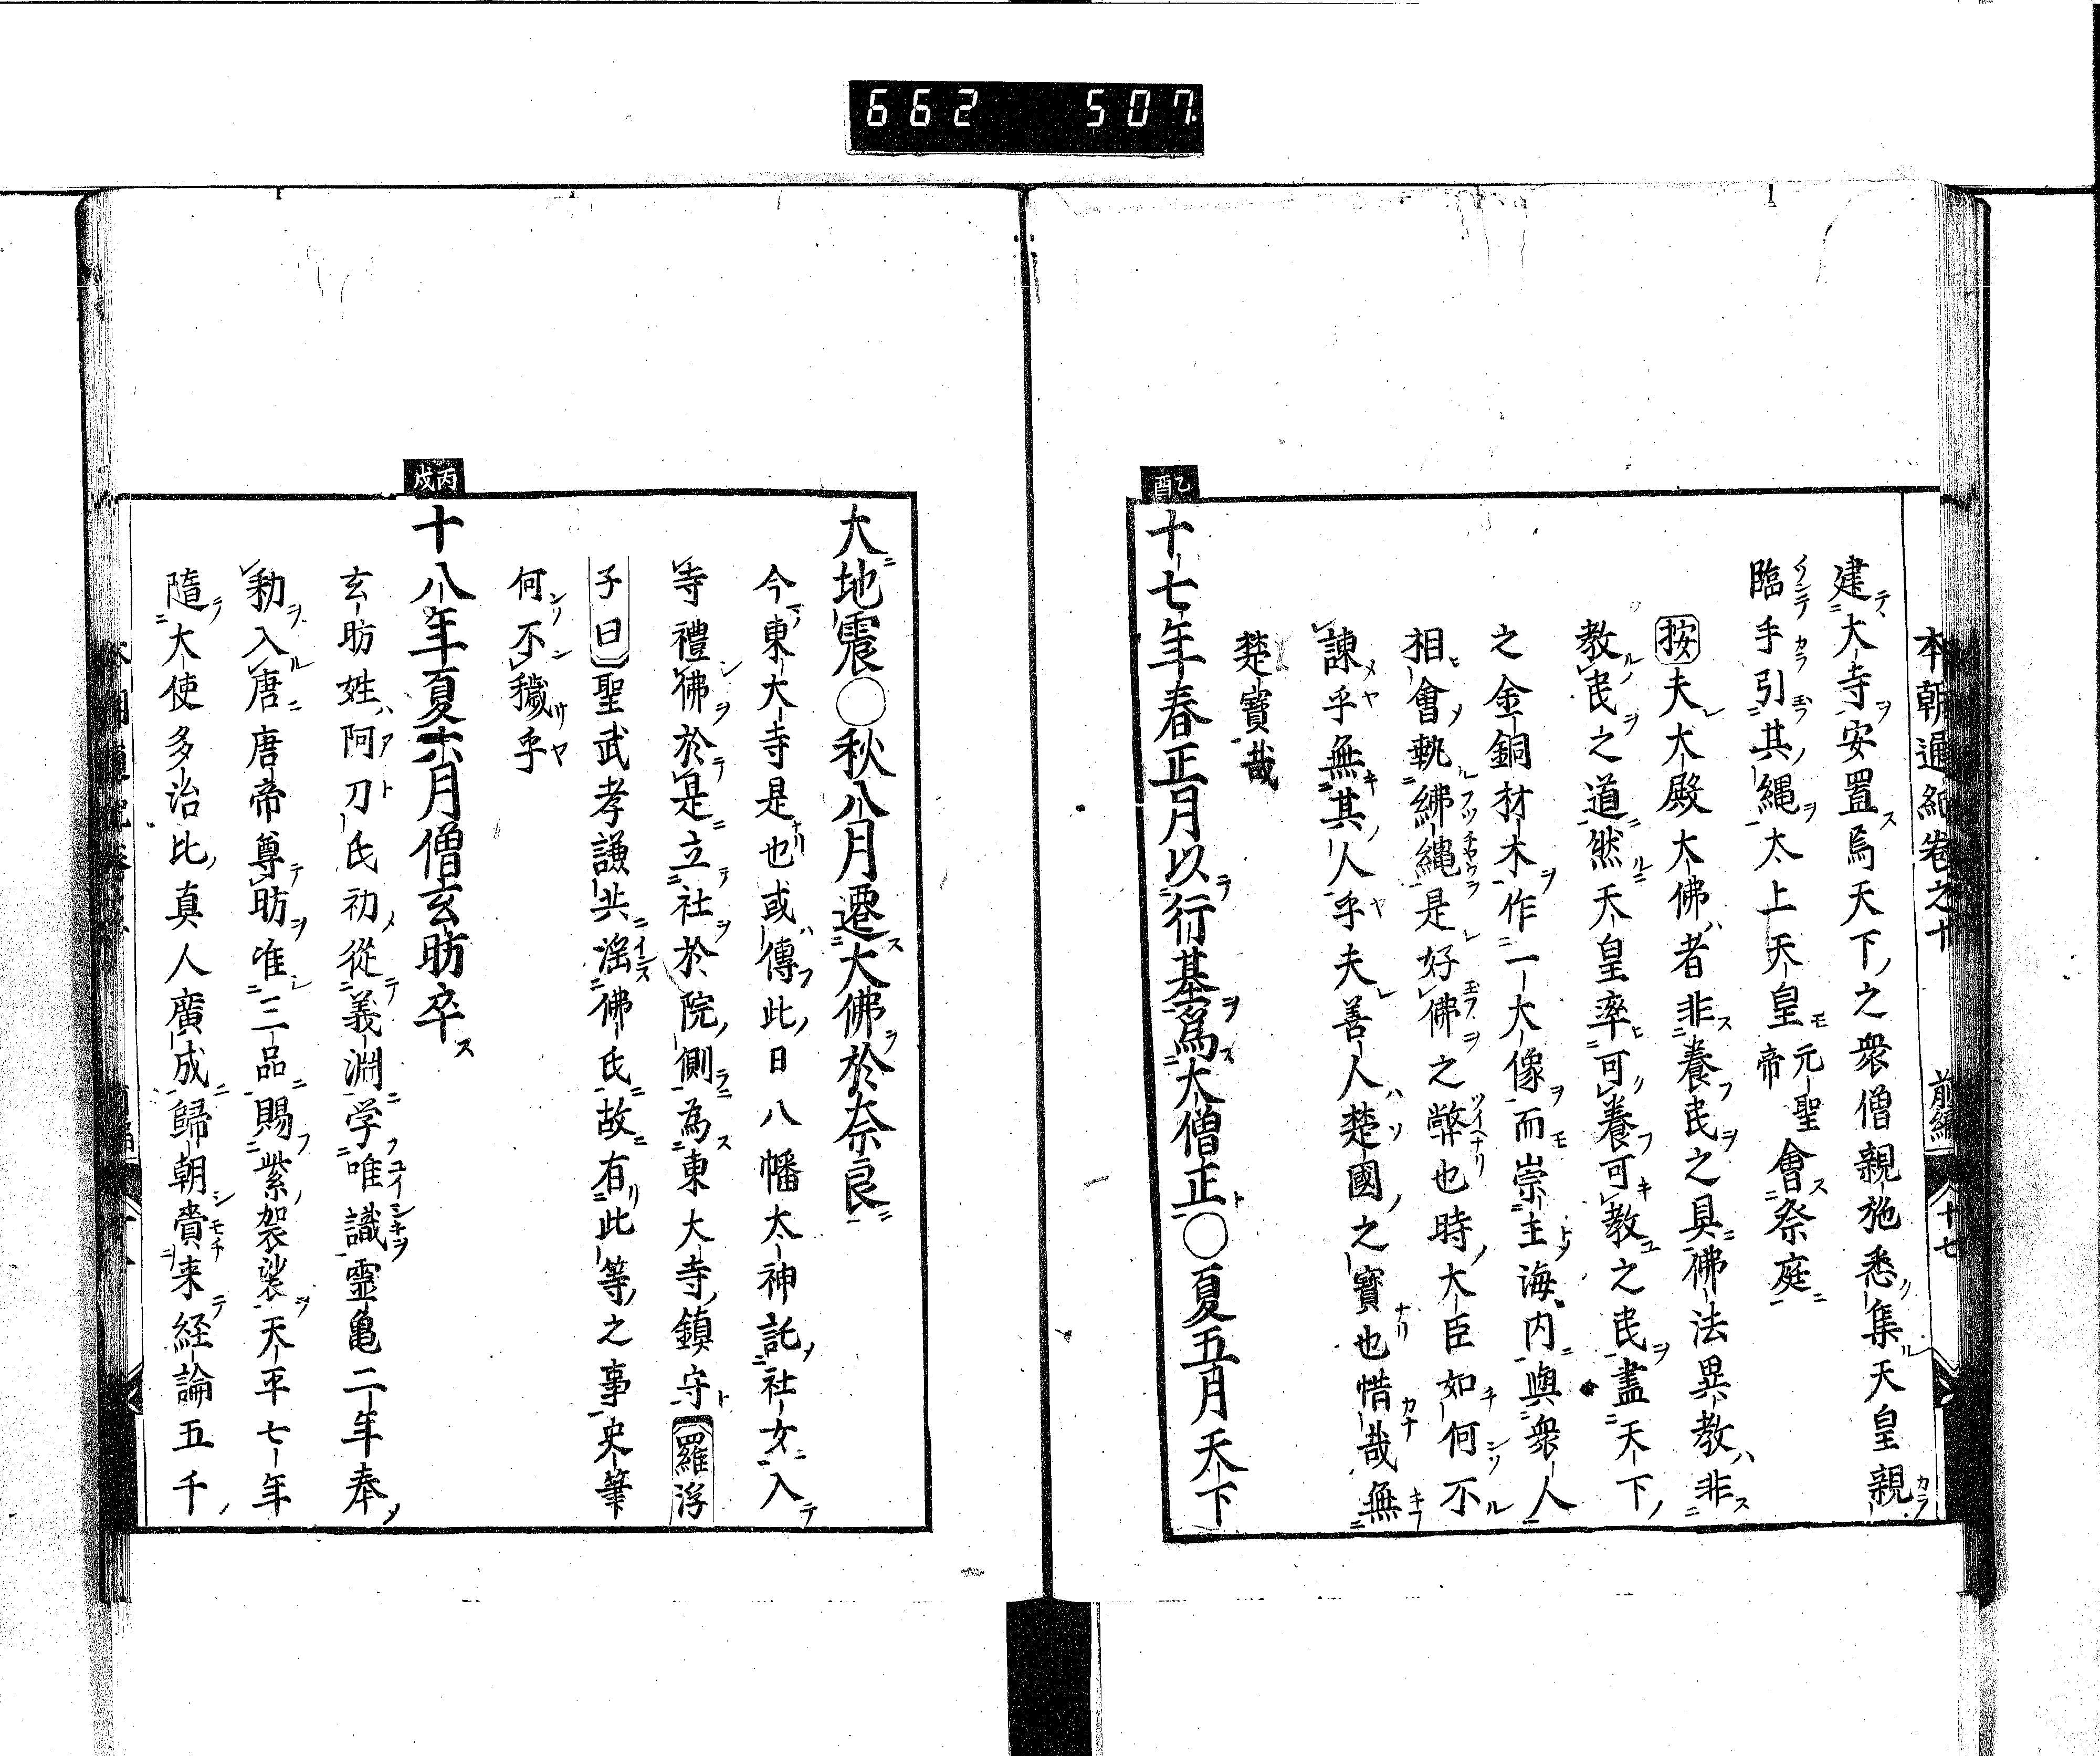 662 507
本朝通紀卷之十 前編 十七
建大寺安置焉天下之衆僧親施悉集天皇親
臨手引其縄太上天皇元聖帝會祭庭
按夫大殿大佛者非養民之具佛法異教非
教民之道然天皇率可養可教之民盡天下
之金銅材木作一大像而崇主海内與衆人
相會執紼縄是好佛之弊也時大臣如何不
諫乎無其人乎夫善人楚國之寳也惜哉無
楚寳哉
乙酉
十七年春正月以行基爲大僧正○夏五月天下
大地震○秋八月遷大佛於奈良
今東大寺是也或傳此日八幡太神託社女入
寺禮佛於是立社於院側為東大寺鎮守羅浮
子曰聖武孝謙共滛佛氏故有此等之事史筆
何不穢乎
丙戌
十八年夏六月僧玄昉卒
玄昉姓阿刀氏初從義淵学唯識霊亀二年奉
勅入唐唐帝尊昉准三品賜紫袈裟天平七年
隨大使多治比真人廣成歸朝賷来経論五千